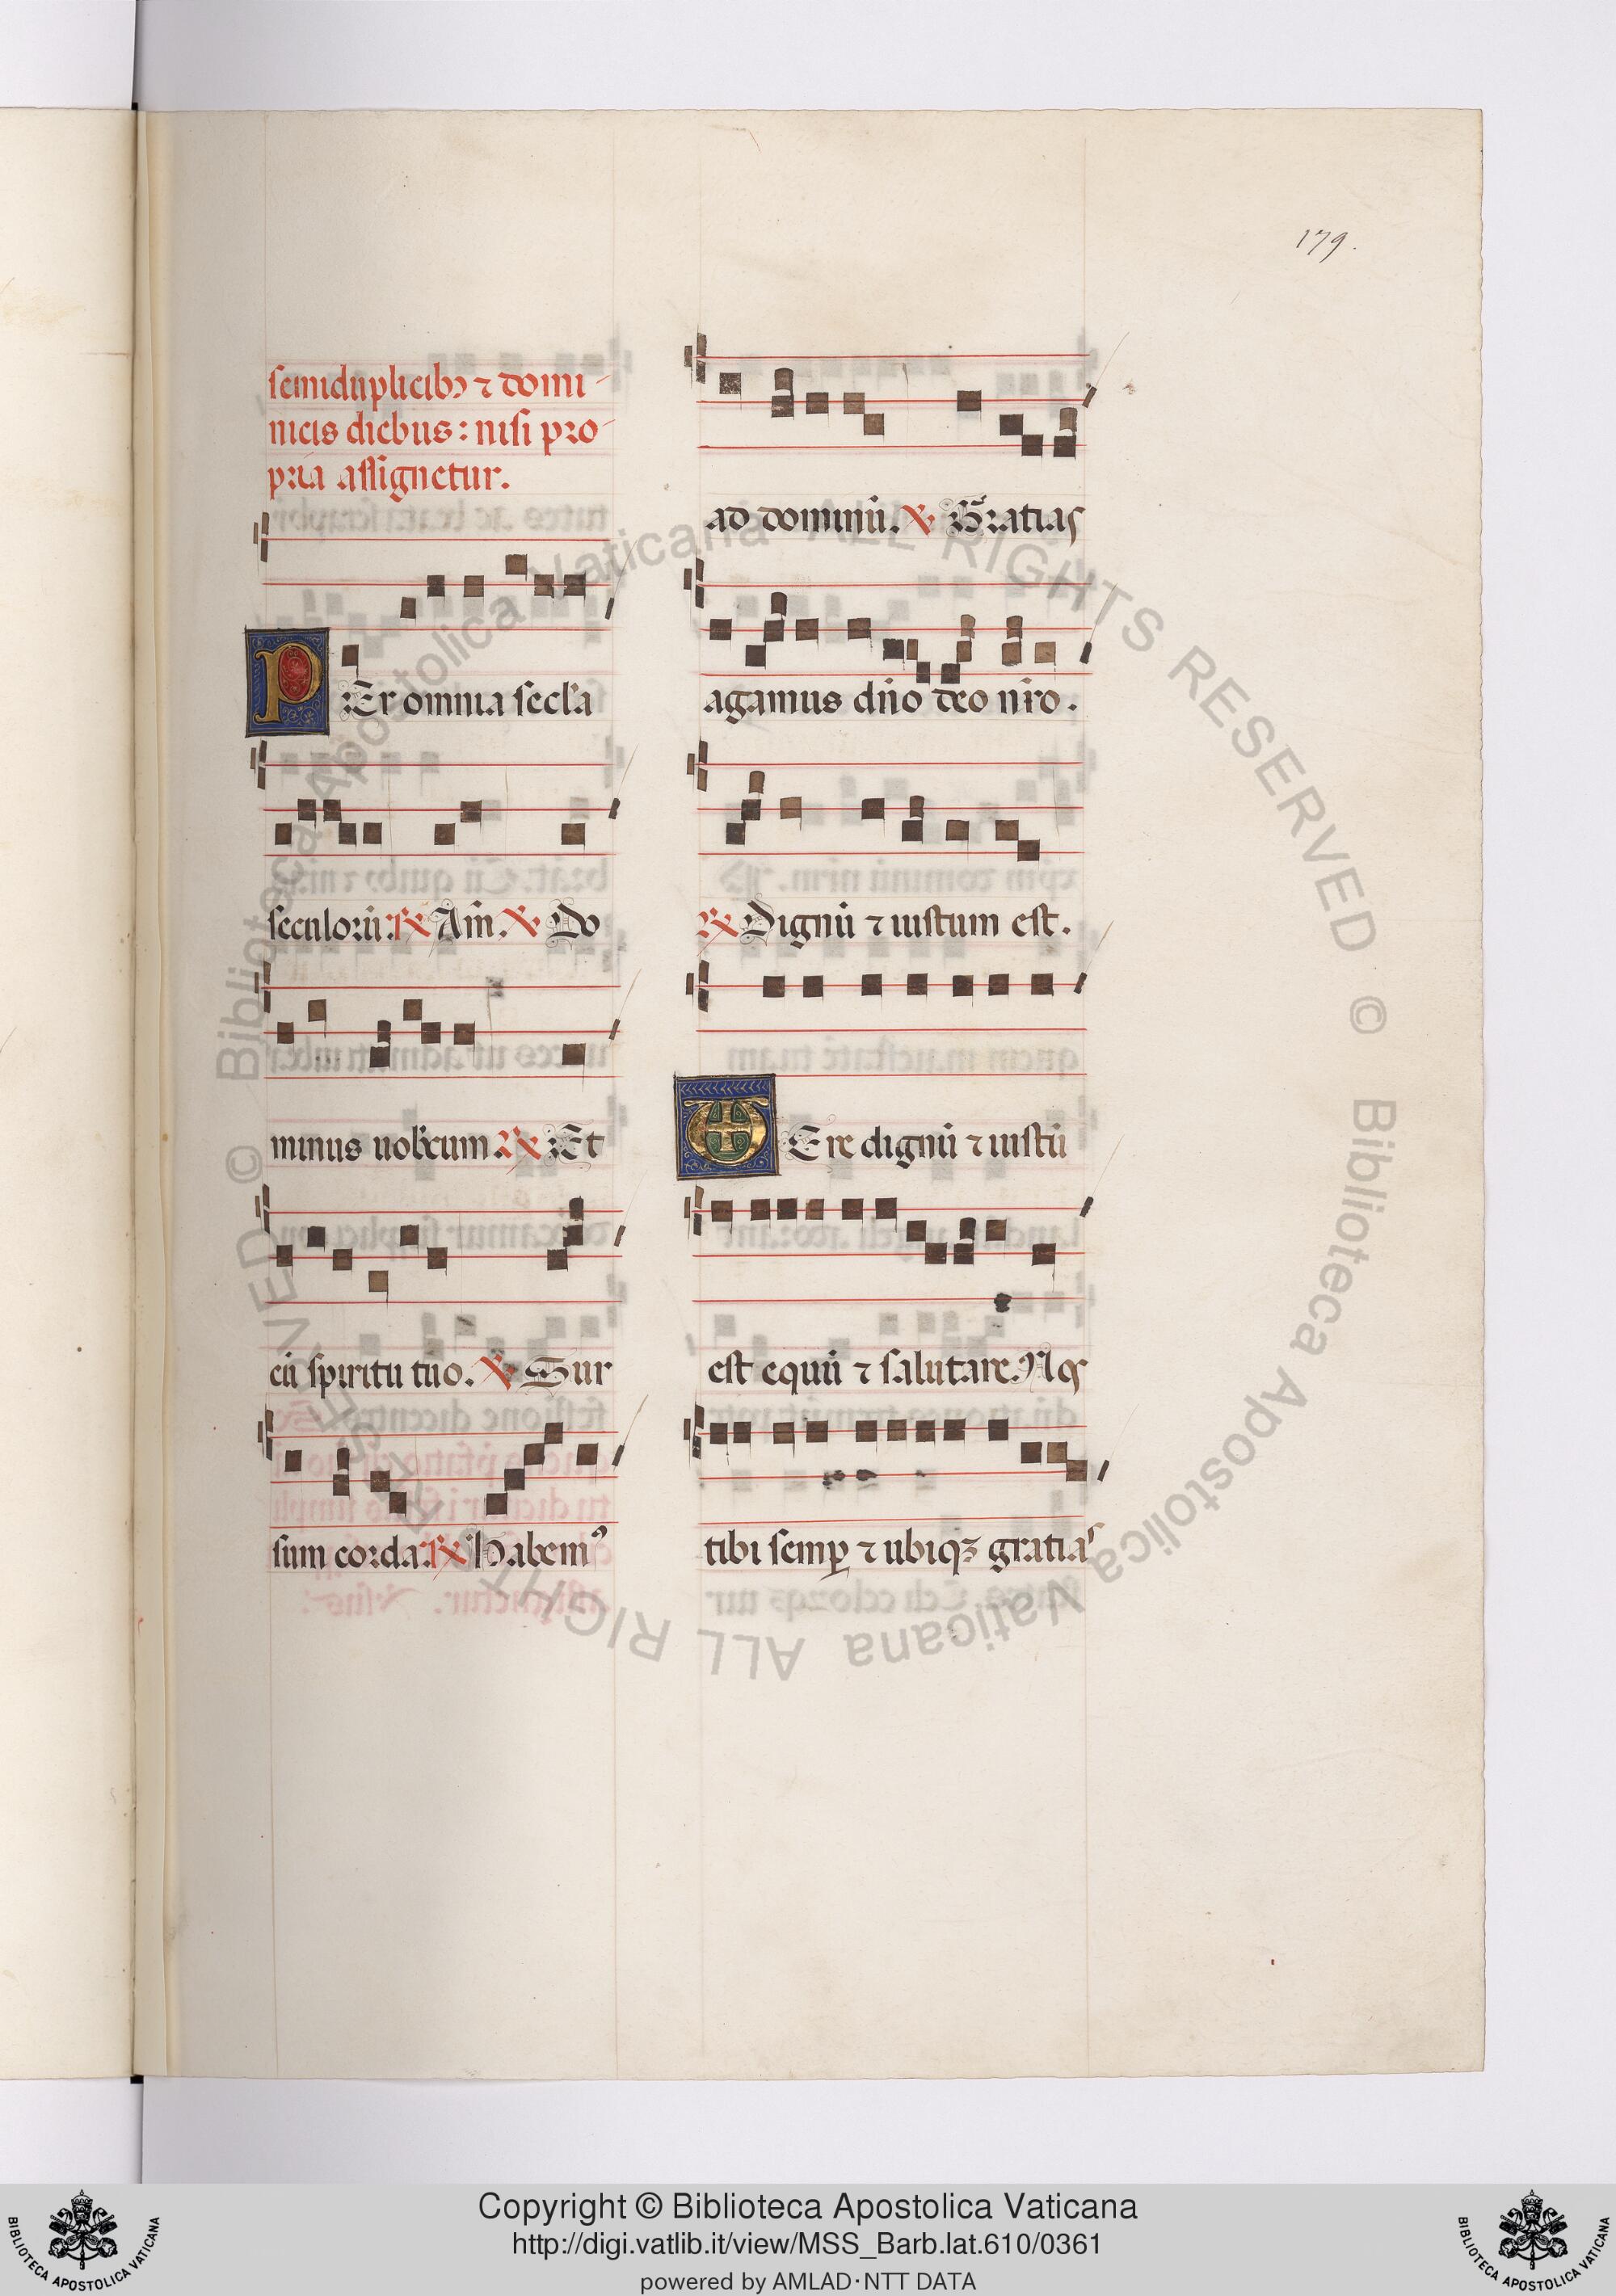 179.
semiduplicibꝫ ⁊ domi-
nicis diebus: nisi pro-
pria assignetur.
PEr omnia secl̄a
seculorū. ℞ Am̄. ℣ Do
minus uobcum. ℞ Et
cū spiritu tuo. ℣ Sur
sum corda. ℞ Habemꝰ
ad dominū. ℣ Gr̄atias
agamus dn̄o deo nr̄o.
℞ Dignū ⁊ iustum est.
VEre dignū ⁊ iustū
est equū ⁊ salutare. Nos
tibi semꝑ ⁊ ubiqꝫ gratias
© Biblioteca Apostolica Vaticana ALL RIGHTS RESERVED © Biblioteca Apostolica Vaticana ALL RIGHTS RESERVED
BIBLIOTECA APOSTOLICA VATICANA
Copyright © Biblioteca Apostolica Vaticana
http://digi.vatlib.it/view/MSS_Barb.lat.610/0361
powered by AMLAD·NTT DATA
BIBLIOTECA APOSTOLICA VATICANA